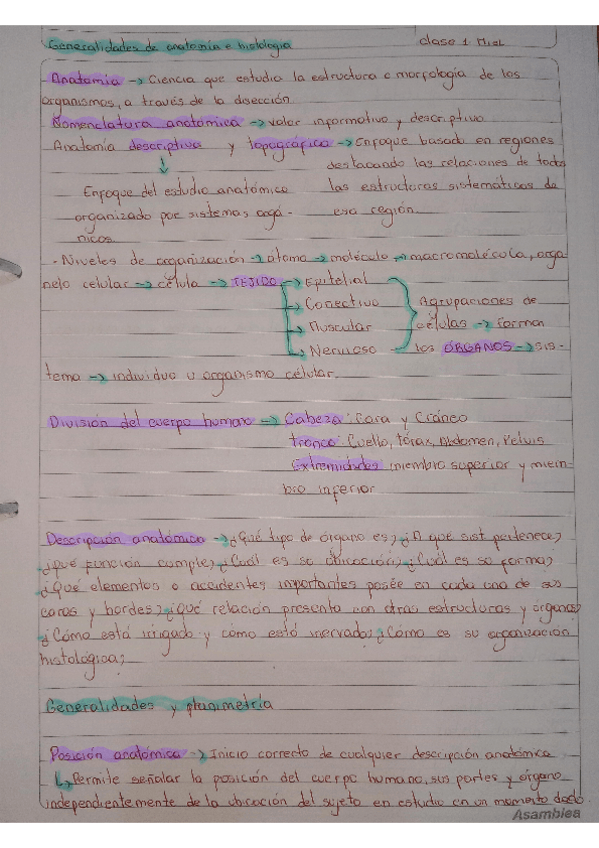 Generalidades de anatomía e histología
clase 1 Miel
Anatomía → Ciencia que estudia la estructura o morfología de los
organismos, a través de la disección
Nomenclatura anatómica → valor informativo y descriptivo
Anatomía descriptiva y topográfica → Enfoque basado en regiones
destacando las relaciones de todas
Enfoque del estudio anatómico
las estructuras sistemáticas de
organizado por sistemas orgá-
esa región.
nicos.
· Niveles de organización → átomo → molécula → macromolécula, orga
nelo celular → célula → TEJIDO → Epitelial
→ Conectivo
Agrupaciones de
→ Muscular
células → forman
→ Nervioso
los ÓRGANOS → sis-
tema → individuo u organismo célular.
División del cuerpo humano → Cabeza: Cara y Cráneo
tronco: Cuello, Tórax, Abdomen, Pelvis
Extremidades: miembro superior y miem-
bro inferior
Descripción anatómica → ¿Qué tipo de órgano es?, ¿A qué sist. pertenece?
¿qué función cumple?, ¿Cuál es su ubicación?, ¿Cuál es su forma?
¿Qué elementos o accidentes importantes posee en cada una de sus
caras y bordes?, ¿Qué relación presenta con otras estructuras y órganos?
¿Cómo está irrigado y cómo está inervado?, ¿Cómo es su organización
histológica?
Generalidades y planimetría
Posición anatómica → Inicio correcto de cualquier descripción anatómica
↳ Permite señalar la posición del cuerpo humano, sus partes y órgano
independientemente de la ubicación del sujeto en estudio en un momento dado.
Asamblea